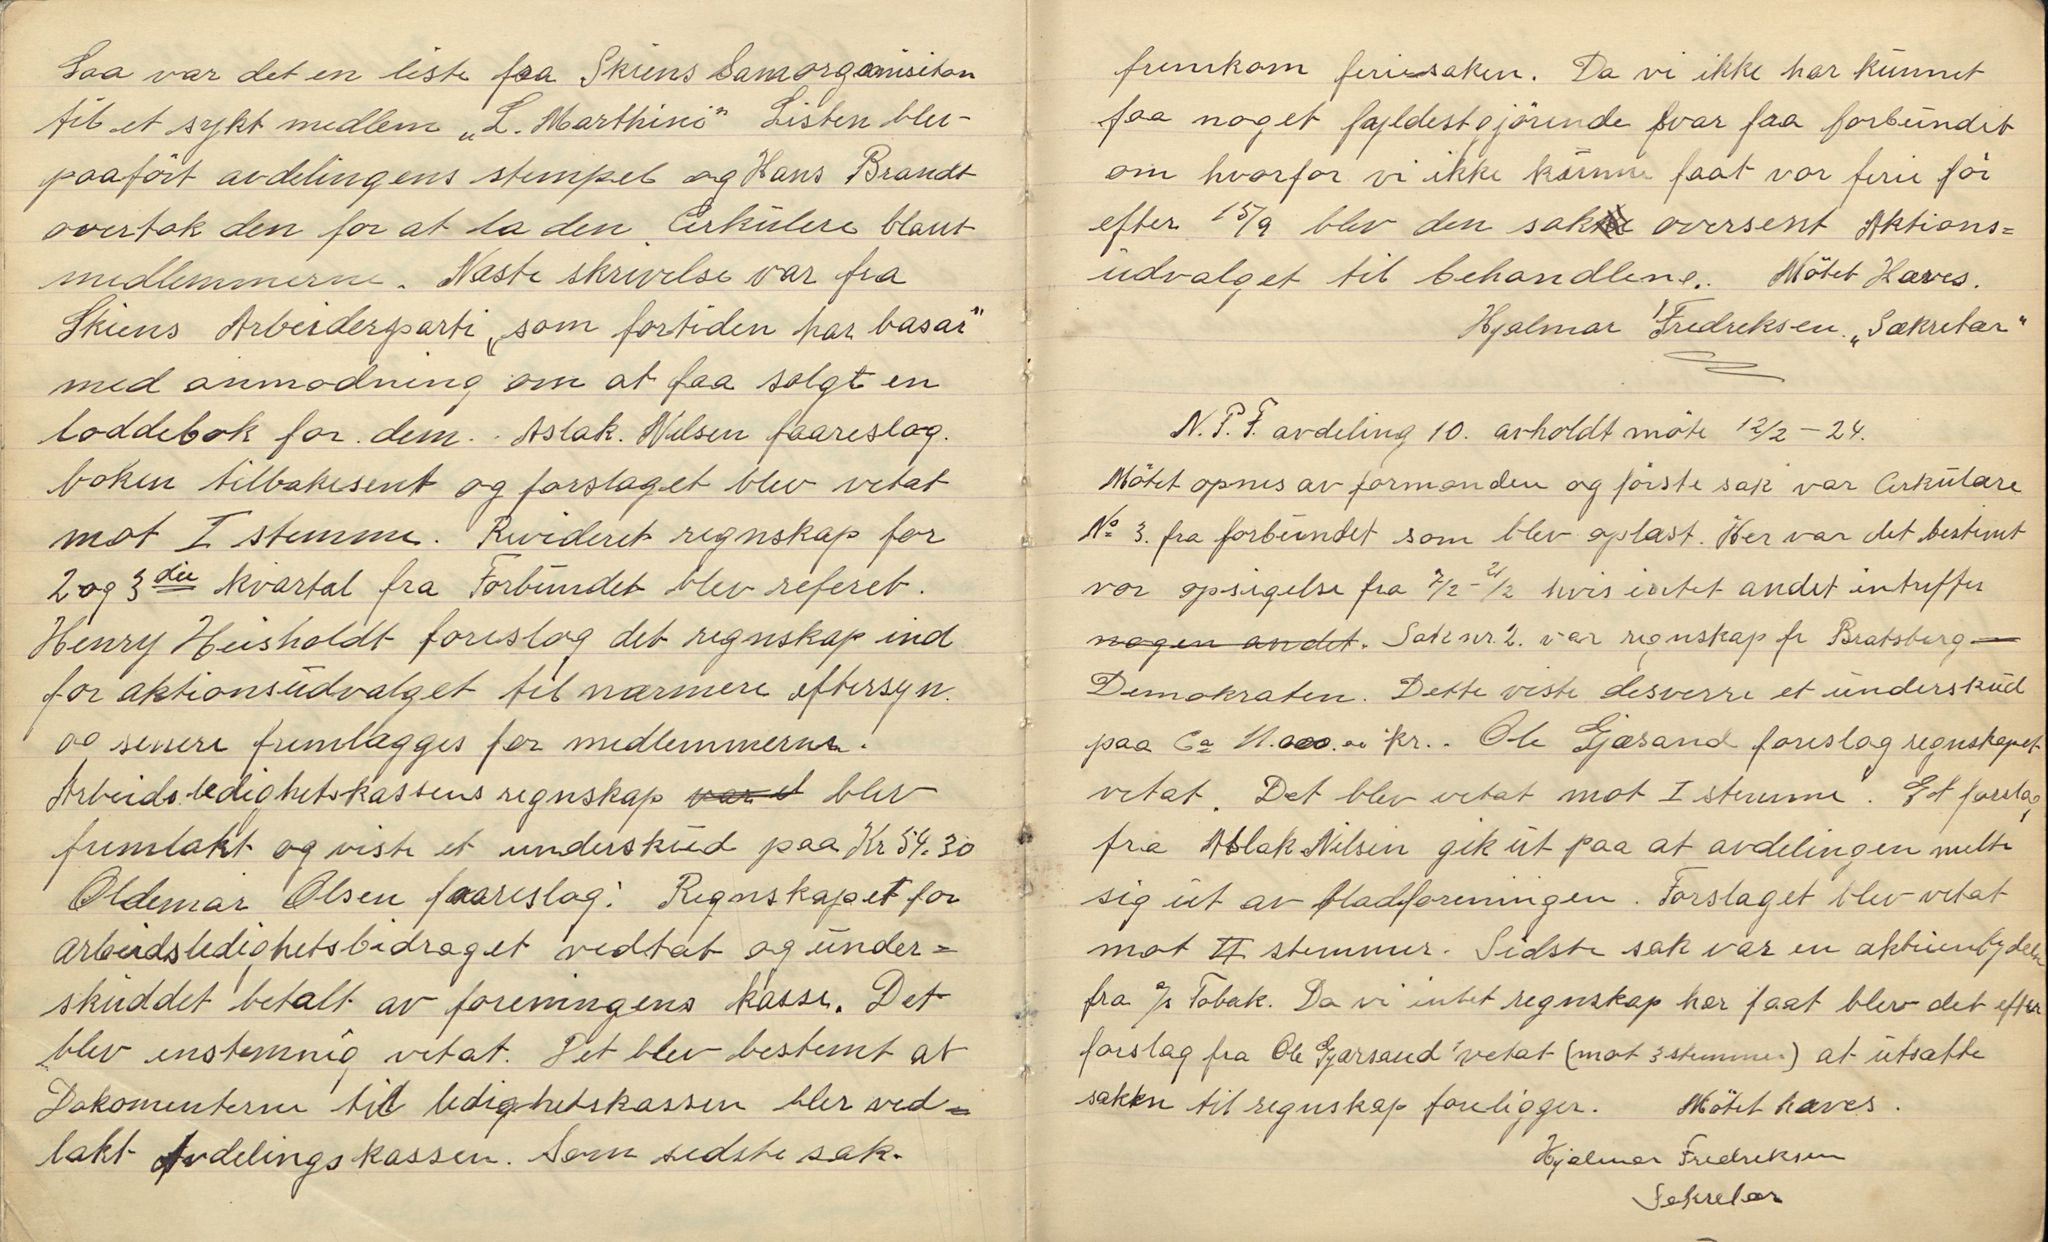 Saa var det en liste fra Skiens Samorganisiton
til et sykt medlem „L. Marthini" Listen blev
paaført avdelingens stempel og Hans Brandt
overtok den for at la den Cerkulere blant
medlemmerne. Næste skrivelse var fra
Skiens Arbeiderparti „som fortiden har basar"
med anmodning om at faa solgt en
loddebok for dem. Aslak. Nilsen faareslog.
boken tilbakesent og forslaget blev vetat
mot I stemme. Revideret regnskap for
2 og 3die kvartal fra Forbundet blev referet.
Henry Heisholdt foreslog det regnskap ind
for aktionsudvalget til nærmere eftersyn.
og senere fremlagges for medlemmerne.
Arbeidsledighetskassens regnskap var et blev
fremlakt og viste et underskud paa Kr 54.30
Oldemar Olsen faareslog: Regnskapet for
arbeidsledighetsbidraget vedtat og under=
skuddet betalt av foreningens kasse. Det
blev enstemnig vetat. Det blev bestemt at
Dokomenterne til ledighetskassen blev ved=
lakt Avdelingskassen. Som sidste sak.
fremkom feriesaken. Da vi ikke har kunnet
faa noget fyldestgjørende svar faa forbundet
om hvorfor vi ikke kunne faat vor ferie før
efter 15/9 blev den sak oversent Aktions=
udvalget til behandlene. Møtet Hæves.
Hjalmar Fredreksen. „Sækretær"
N.P.F. avdeling 10. avholdt møte 12/2 - 24.
Møtet opnes av formanden og første sak var Cirkulære
No 3. fra forbundet som blev oplæst. Her var det bestemt
vor opsigelse fra 7/2 - 21/2 hvis intet andet intreffer
nogen andet. Sak nr. 2. var regnskap fr Bratsberg
Demokraten. Dette viste desverre et underskud
paa Ca 11.000.00 kr.. Ole Gjærsand foreslog regnskapet
vetat. Det blev vetat mot I stemme. Et forslag
fra Aslak Nilsen gik ut paa at avdelingen melte
sig ut av bladforeningen. Forslaget blev vetat
mot II stemmer. Sidste sak var en aktieinbydelse
fra A/s Tobak. Da vi intet regnskap har faat blev det efter
forslag fra Ole Gjærsand vetat (mot 3 stemmer) at utsætte
sakken til regnskap foreligger. Møtet hæves.
Hjalmar Fredreksen
Sekretær